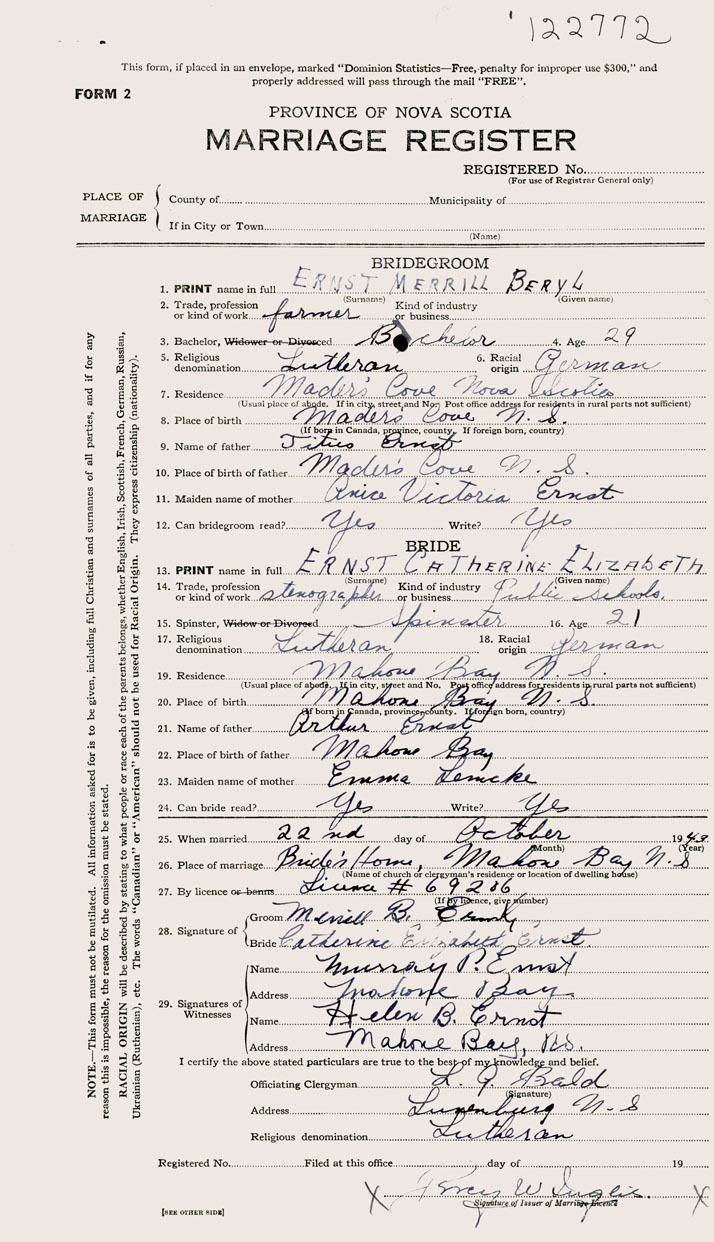 122772
This form, if placed in an envelope, marked "Dominion Statistics—Free, penalty for improper use $300," and
properly addressed will pass through the mail "FREE".
FORM 2
PROVINCE OF NOVA SCOTIA
MARRIAGE REGISTER
REGISTERED No.
(For use of Registrar General only)
PLACE OF MARRIAGE
County of Municipality of
If in City or Town
(Name)
BRIDEGROOM
1. PRINT name in full ERNST MERRILL BERYL
(Surname) (Given name)
2. Trade, profession or kind of work farmer Kind of industry or business
3. Bachelor, Widower or Divorced Bachelor 4. Age 29
5. Religious denomination Lutheran 6. Racial origin German
7. Residence Mader's Cove Nova Scotia
(Usual place of abode. If in city, street and No. Post office address for residents in rural parts not sufficient)
8. Place of birth Mader's Cove N. S.
(If born in Canada, province, county. If foreign born, country)
9. Name of father Titus Ernst
10. Place of birth of father Mader's Cove N. S.
11. Maiden name of mother Anice Victoria Ernst
12. Can bridegroom read? Yes Write? Yes
BRIDE
13. PRINT name in full ERNST CATHERINE ELIZABETH
(Surname) (Given name)
14. Trade, profession or kind of work stenographer Kind of industry or business Public Schools.
15. Spinster, Widow or Divorced Spinster 16. Age 21
17. Religious denomination Lutheran 18. Racial origin German
19. Residence Mahone Bay N. S.
(Usual place of abode. If in city, street and No. Post office address for residents in rural parts not sufficient)
20. Place of birth Mahone Bay N. S.
(If born in Canada, province, county. If foreign born, country)
21. Name of father Arthur Ernst
22. Place of birth of father Mahone Bay
23. Maiden name of mother Emma Lemcke
24. Can bride read? Yes Write? Yes
25. When married 22nd day of October 1943
(Month) (Year)
26. Place of marriage Bride's Home, Mahone Bay N. S
(Name of church or clergyman's residence or location of dwelling house)
27. By licence or banns Licence # 69286
(If by licence, give number)
28. Signature of
Groom Merrill B. Ernst
Bride Catherine Elizabeth Ernst.
29. Signatures of Witnesses
Name Murray P. Ernst
Address Mahone Bay
Name Helen B. Ernst
Address Mahone Bay, N.S.
I certify the above stated particulars are true to the best of my knowledge and belief.
Officiating Clergyman L. G. Bald
(Signature)
Address Lunenburg N. S
Religious denomination Lutheran
Registered No. Filed at this office day of 19
X Percy W Inglis. X
Signature of Issuer of Marriage Licence
[SEE OTHER SIDE]
NOTE.—This form must not be mutilated. All information asked for is to be given, including full Christian and surnames of all parties, and if for any
reason this is impossible, the reason for the omission must be stated.
RACIAL ORIGIN will be described by stating to what people or race each of the parents belongs, whether English, Irish, Scottish, French, German, Russian,
Ukrainian (Ruthenian), etc. The words "Canadian" or "American" should not be used for Racial Origin. They express citizenship (nationality).